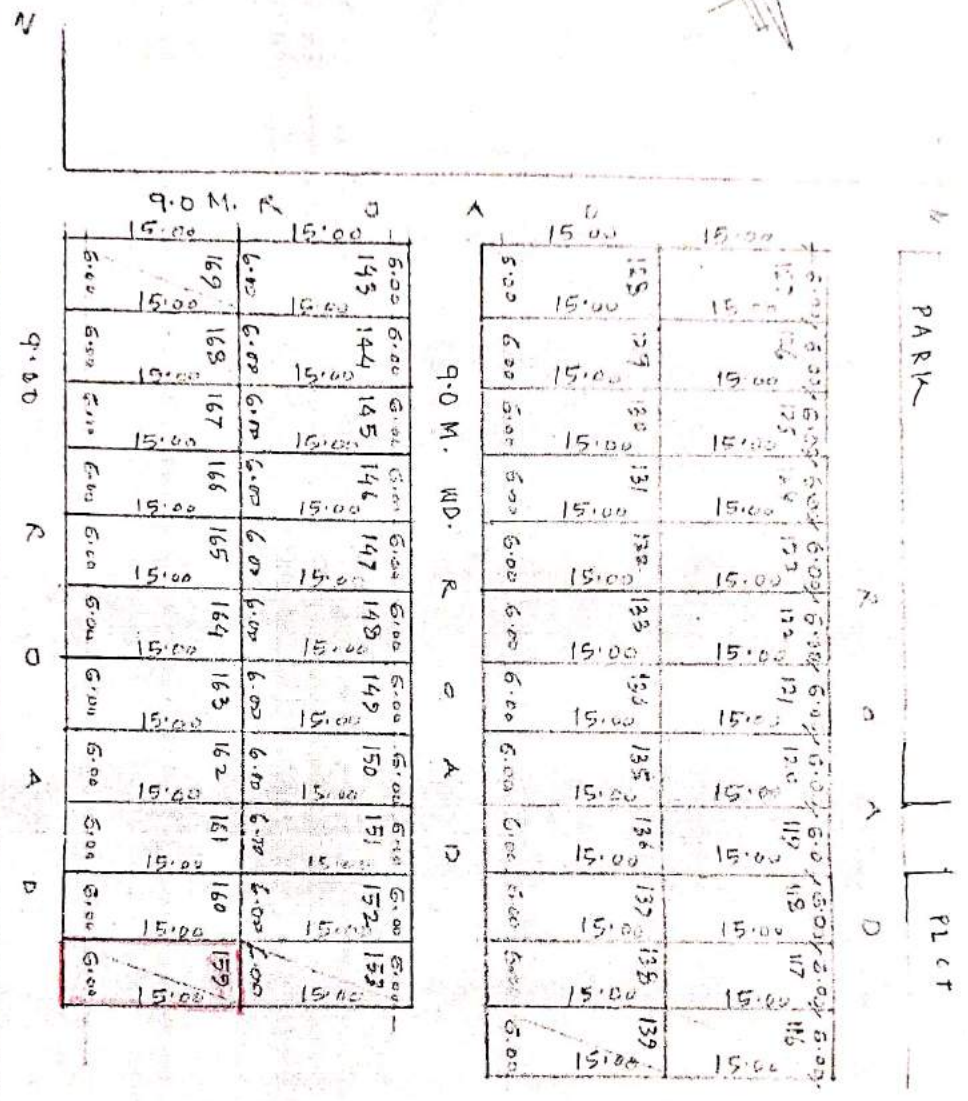 N
9.0 M. R O A D
15.00 15.00 15.00 15.00
6.00 169 15.00 6.00 143 15.00 6.00
6.00 128 15.00 15.00
6.00 168 15.00 6.00 144 15.00 6.00
6.00 129 15.00 126 15.00 6.00
6.00 167 15.00 6.00 145 15.00 6.00
6.00 130 15.00 125 15.00 6.00
6.00 166 15.00 6.00 146 15.00 6.00
6.00 131 15.00 15.00 6.00
6.00 165 15.00 6.00 147 15.00 6.00
6.00 132 15.00 123 15.00 6.00
6.00 164 15.00 6.00 148 15.00 6.00
6.00 133 15.00 122 15.00 6.00
6.00 163 15.00 6.00 149 15.00 6.00
6.00 15.00 121 15.00 6.0
6.00 162 15.00 6.00 150 15.00 6.00
6.00 135 15.00 120 15.00 6.0
6.00 161 15.00 6.00 151 15.00 6.00
6.00 136 15.00 119 15.00 6.0
6.00 160 15.00 6.00 152 15.00 6.00
6.00 137 15.00 118 15.00 6.0
6.00 159 15.00 6.00 153 15.00 6.00
6.00 138 15.00 117 15.00 6.00
6.00 139 15.00 116 15.00 6.00
9.00 R O A D
9.0 M. WD. R O A D
R O A D
PARK
PLOT